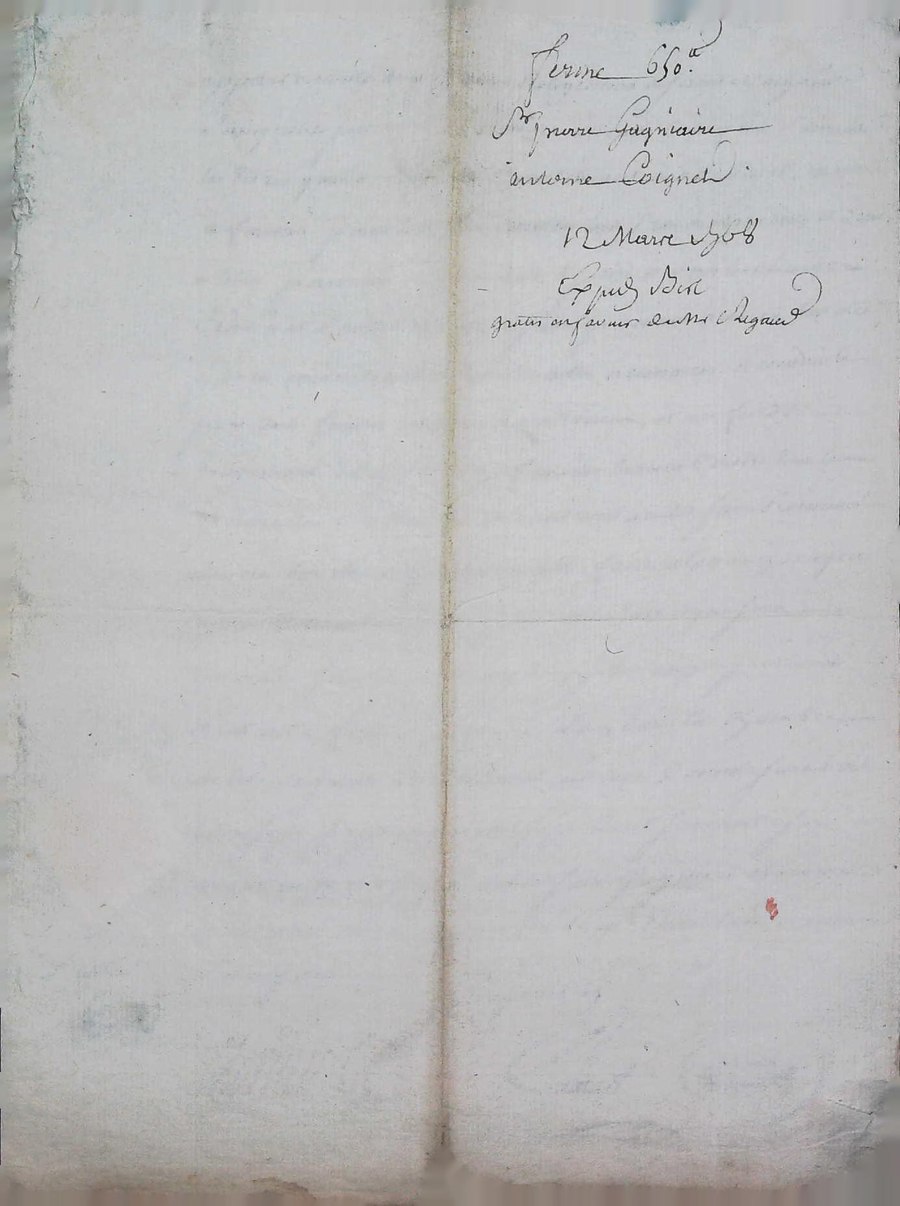 ferme 650.tt
Sr pierre Gagniaire
antoine Coignet
12 Mars 1768
Exped Bis
gratis en faveur du Mr Regaud